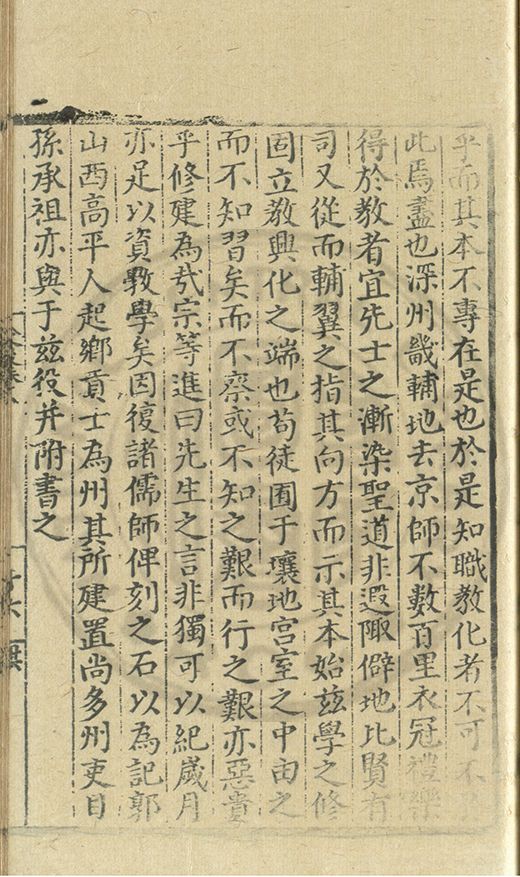 乎而其本不專在是也於是知職教化者不可不
此焉盡也深州畿輔地去京師不數百里衣冠禮樂
得於教者宜先士之漸染聖道非遐陬僻地比賢有
司又從而輔翼之指其向方而示其本始茲學之修
固立教興化之端也苟徒囿于壤地宮室之中由之
而不知習矣而不察或不知之艱而行之艱亦惡貴
乎修建為㢤宗等進曰先生之言非獨可以紀歲月
亦足以資教學矣因復諸儒師俾刻之石以為記郭
山西高平人起鄉貢士為州其所建置尚多州吏目
孫承祖亦與于茲役并附書之